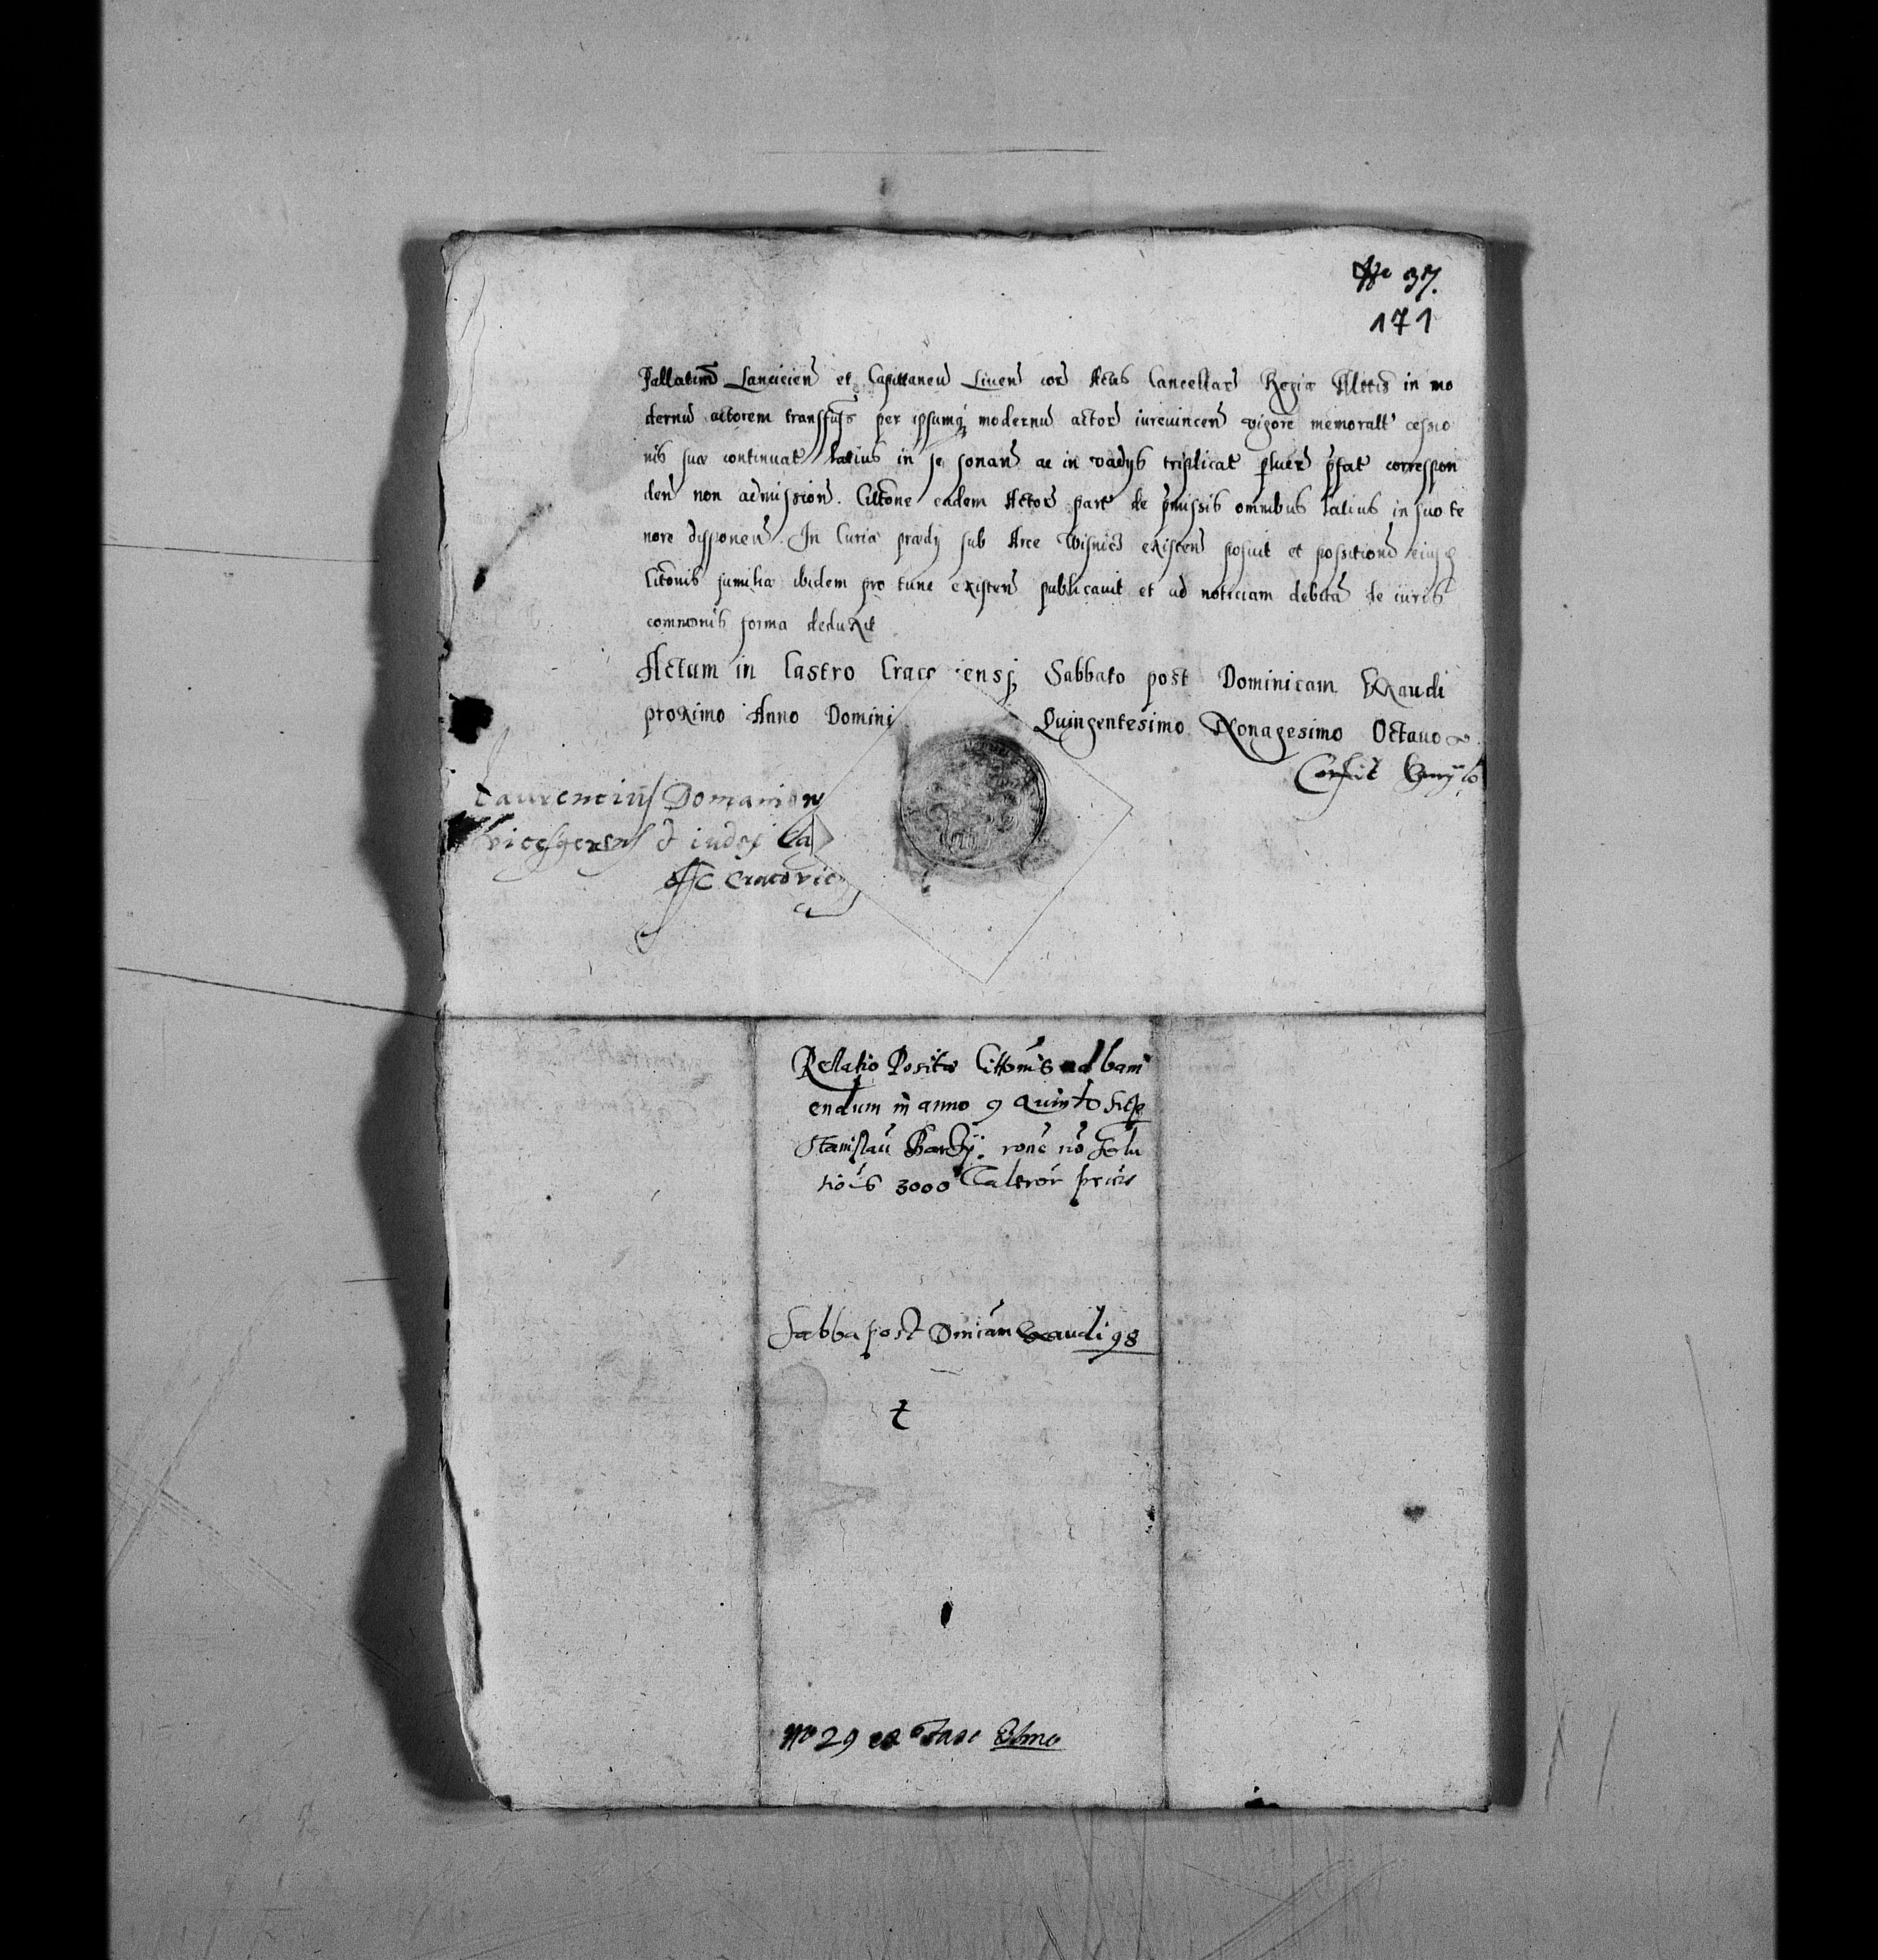 No 37.
171
Pallatinu Lancicien et Capittaneu Liuen cor Actis Cancellar Regiæ Mttis in mo
dernu actorem transfus per ipsumq modernu actor iureuincen vigore memoratt cessio
nis suæ continuat latius in se sonan ac in vadys triplicat pfat correspon
den non admission. Cittone eadem Actor part de pmissis omnibus latius in suo te
nore disponen. In Curia prædy sub Arce Wisnicz existen posuit et possitione eiusq
Citonis familiæ ibidem pro tunc existen publicauit et ad noticiam debita de iuris
communis forma deduxit
Actum in Castro Crac iensj Sabbato post Dominicam Exaudi
proximo Anno Domini Quingentesimo Nonagesimo Octauo
Laurencius Domanion
vicesgerens et iudex Ca
Cracovie
Rellatio Positæ Cittonis ad bani
endum in anno 9 Quinto
Stanislau rone no Solu
tiois 3000 Taleror
Sabba post Dnicam Exaudi 98
t
No 29 ex Fasc